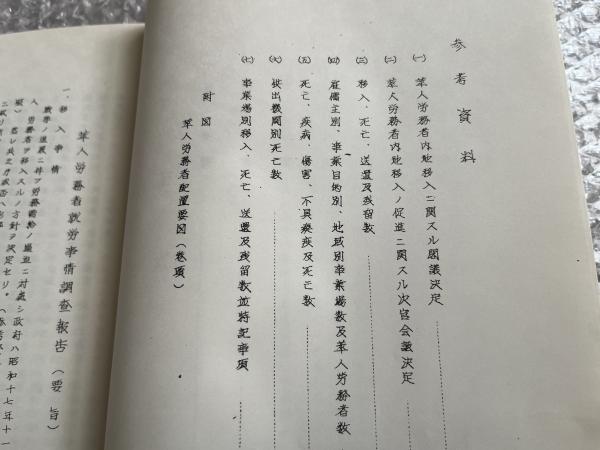 参考資料
㈠ 華人労務者内地移入ニ関スル閣議決定
㈡ 華人労務者内地移入ノ促進ニ関スル次官会議決定
㈢ 移入、死亡、送還及残留数
㈣ 雇傭主別、事業目的別、地域別事業場数及華人労務者数
㈤ 死亡、疾病、傷害、不具癈疾及死亡数
㈥ 供出機関別死亡数
㈦ 事業場別移入、死亡、送還及残留数並特記事項
附図
華人労務者配置要図（巻頂）
華人労務者就労事情調査報告（要旨）
一、移入事情
戦争ノ進展ニ伴フ労務需給ノ逼迫ニ対処シ政府ハ昭和十七年十一